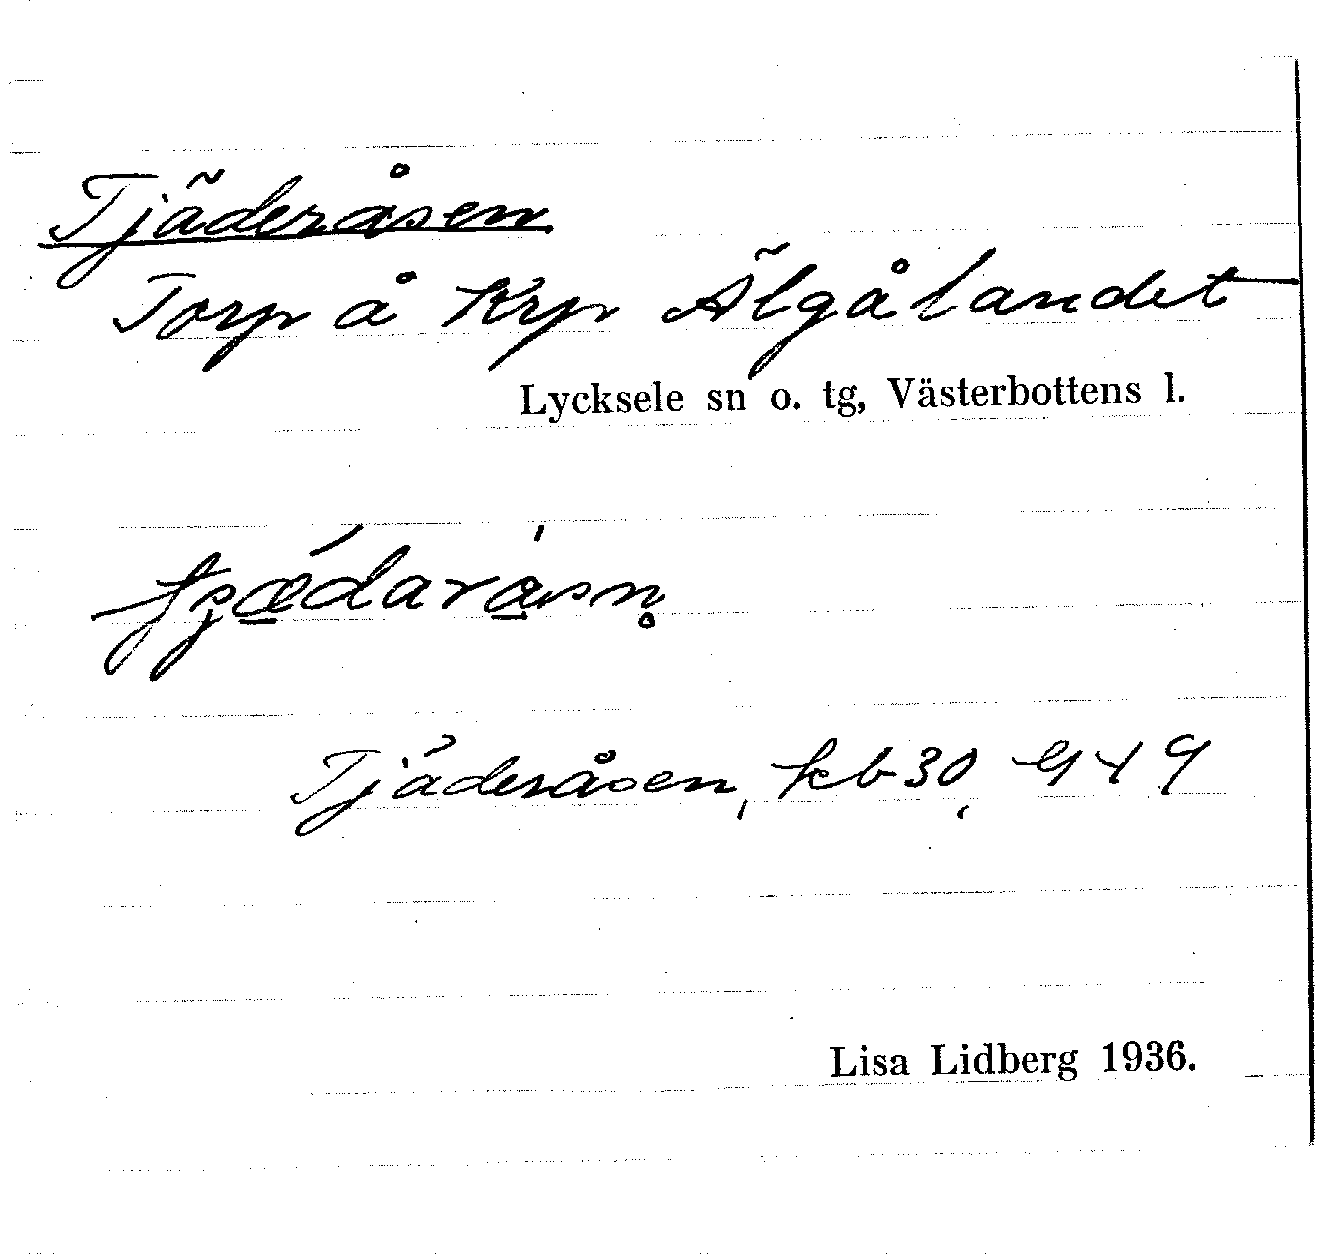 Tjäderåsen
Torp å Krp Älgålandet
Lycksele sn o. tg, Västerbottens l.
Tjäderåsen, kb 30,
Lisa Lidberg 1936.